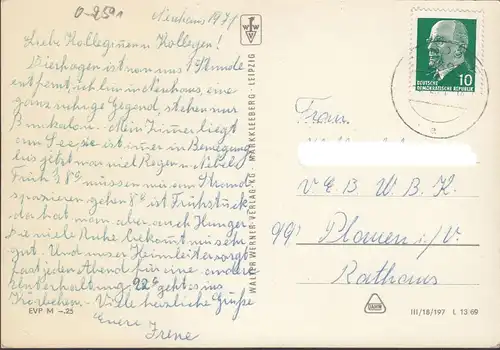 0-2591
Neuhaus 1971
Liebe Kolleginnen u. Kollegen!
Dierhagen ist nun uns 1 Stunde
entfernt, ich bin in Neuhaus eine
ganz ruhige Gegend, stehen nur
Bunkalow. Mein Zimmer liegt
am See, sie ist immer in Bewegung
bis jetzt nur viel Regen u. Nebel.
Früh müssen wir am Strand
spazieren gehen 8° ist Frühstück
da hat man aber auch Hunger.
Die viele Ruhe bekommt mir sehr
gut. Und unser Heimleiter sorgt
fast jeden Abend für eine andere
Unterhaltung, 22° geht es ins
Körbchen. Viele herzliche Grüße
Eurer
Irene
EVP M -.25
WALTER WERNER-VERLAG-KG MARKKLEEBERG - LEIPZIG
DEUTSCHE
DEMOKRATISCHE REPUBLIK
10
Frau
V. E. B. W. B. K.
99 Plauen i./V.
Rathaus
III/18/197 L 13 69